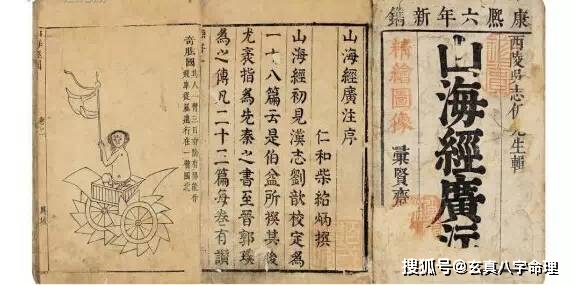 康熙六年新鐫
西陵吳志伊先生輯
山海經廣注
精繪圖像
彙賢齋
山海經廣注序
仁和柴紹炳撰
山海經初見漢志劉歆校定為
一十八篇云是伯益所撰其後
尤袤指為先秦之書至晉郭璞
為之傳凡二十二篇每卷有讚
奇肱國
其人一臂三目有陰有陽能作
飛車從風遠行在一臂國北
搜狐号@玄真八字命理